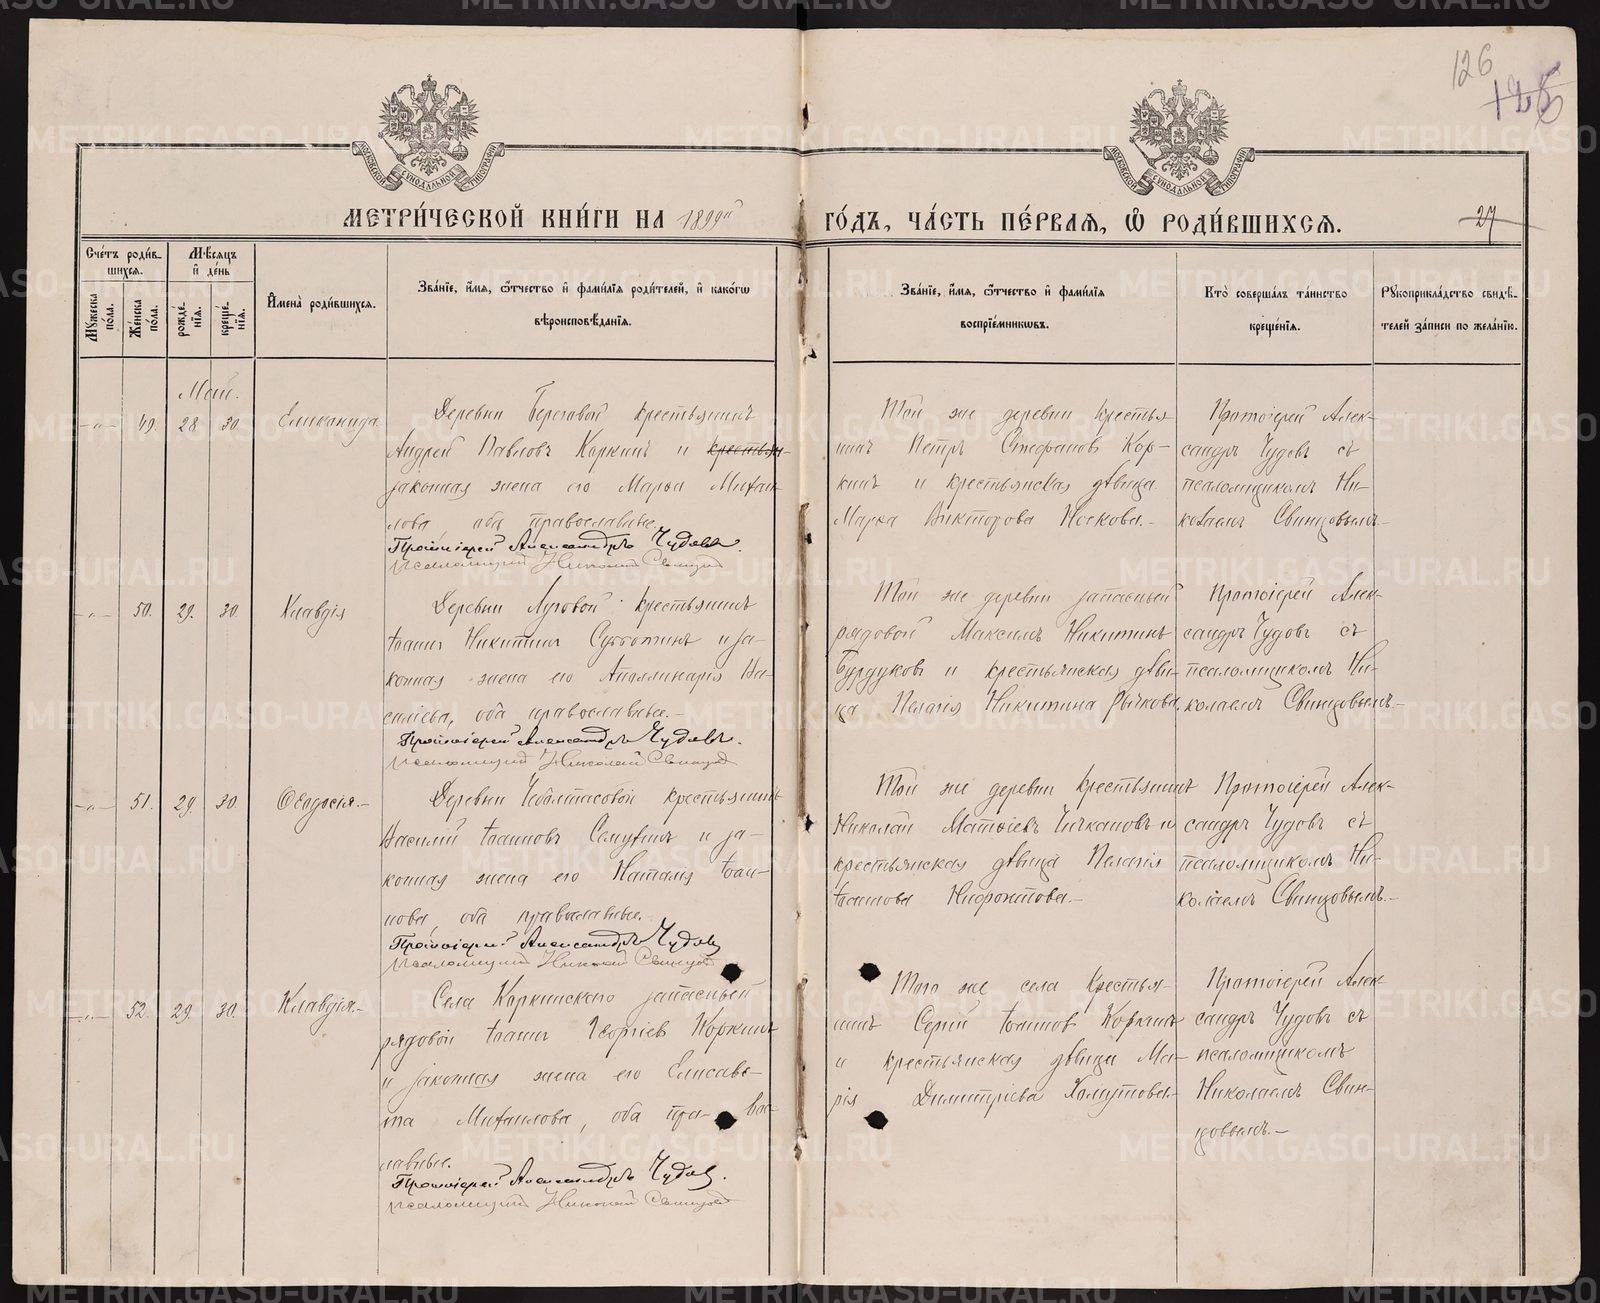 126
МЕТРИ́ЧЕСКОЙ КНИ́ГИ НА 1899й ГО́ДЪ, ЧА́СТЬ ПЕ́РВАЯ, Ѡ҆ РОДИ́ВШИХСЯ.
27
Сче́тъ роди́в-
шихся.
Мꙋжеска по́ла.
Же́нска по́ла.
Мѣ́сяцъ
и҆ де́нь
рожде́нїя.
креще́нїя.
И҆мена̀ роди́вшихся.
Зва́нїе, и҆́мя, ѻ҆́тчество и҆ фами́лїя роди́телей, и҆ како́гѡ
вѣроисповѣ́данїя.
Зва́нїе, и҆́мя, ѻ҆́тчество и҆ фами́лїя
воспрїе́мникѡвъ.
Кто̀ соверша́лъ та́инство
креще́нїя.
Рꙋкоприкла́дство свидѣ́-
телей за́писи по жела́нїю.
Май.
-„- 49. 28 30. Еликанида
Деревни Береговой крестьянинъ
Андрей Павловъ Коркинъ и крестьян-
законная жена его Марѳа Михаи-
лова оба православные.
Протоіерей Александръ Чудовъ.
Псаломщикъ Николай Свинцов
Той же деревни крестья-
нинъ Петръ Стефановъ Кор-
кинъ и крестьянская дѣвица
Викторова Носкова.-
Протоіерей Алек-
сандръ Чудовъ съ
псаломщикомъ Ни-
колаемъ Свинцовымъ-
-„- 50. 29. 30. Клавдія
Деревни Луговой крестьянинъ
Іоаннъ Никитинъ Субботинъ и за-
конная жена его Аполлинарія Ва-
силіева, оба православные.-
Протоіерей Александръ Чудовъ.
Псаломщикъ Николай Свинцов
Той же деревни запасный
рядовой Максимъ Никитинъ
Бурдуковъ и крестьянская дѣви-
ца Пелагія Никитина Рычкова.
Протоіерей Алек-
сандръ Чудовъ съ
псаломщикомъ Ни-
колаемъ Свинцовымъ.-
-„- 51. 29. 30. Ѳеодосія.-
Деревни крестьянинъ
Василій Іоанновъ Семухинъ и за-
конная жена его Наталія Іоан-
нова, оба православные.
Протоіерей Александръ Чудовъ
Псаломщикъ Николай Свинцов
Той же деревни крестьянинъ
Николай Матѳіевъ Чичкановъ и
крестьянская дѣвица Пелагія
Іоаннова Нифонтова.-
Протоіерей Алек-
сандръ Чудовъ съ
псаломщикомъ Ни-
колаемъ Свинцовымъ.-
-„- 52. 29. 30. Клавдія.-
Села Коркинскаго запасный
рядовой Іоаннъ Георгіев Коркинъ
и законная жена его Елисаве-
та Михаилова, оба пра- вос-
лавные.
Протоіерей Александръ Чудовъ.
Псаломщикъ Николай Свинцов
Того же села крестья-
нинъ Сергій Іоаннов Коркинъ
и крестьянская дѣвица Ма-
рія Димитріева Хомутова.-
Протоіерей Алек-
сандръ Чудовъ съ
псаломщикомъ
Николаемъ Свин-
цовымъ.-
METRIKI.GASO-URAL.RU